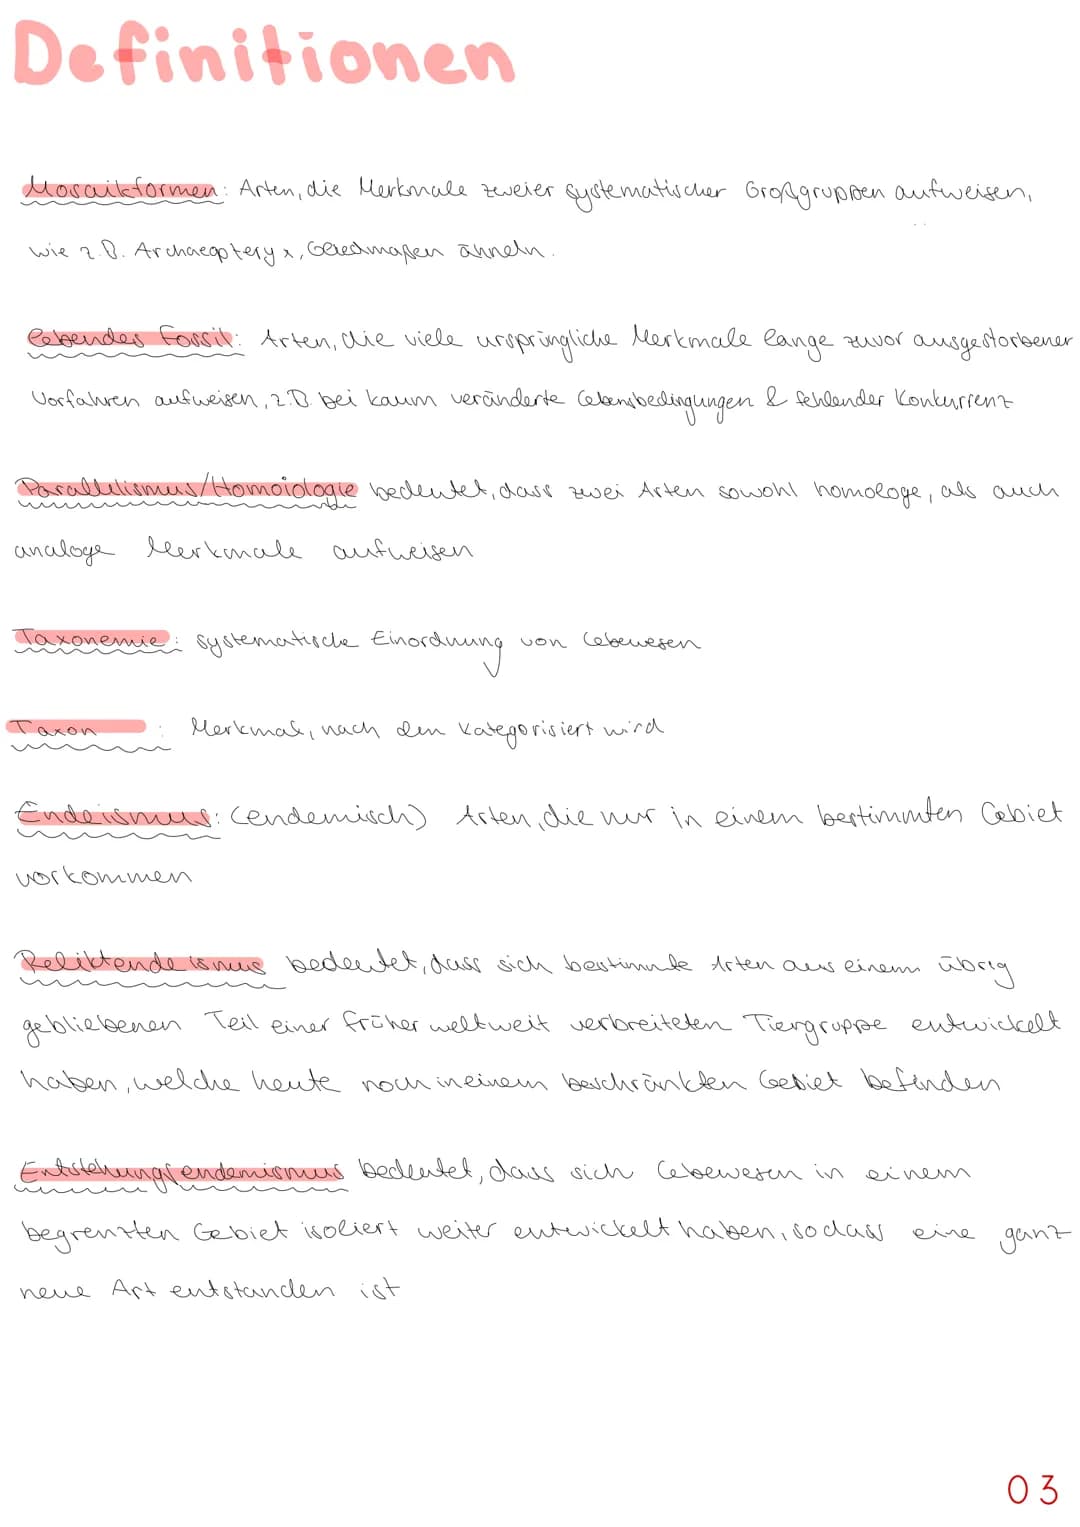 Definitionen
Mosaikformen: Arten, die Merkmale zweier systematischer Großgruppen aufweisen,
wie z.B. Archaeopteryx, Gliedmaßen ähneln.
Lebendes Fossil: Arten, die viele ursprüngliche Merkmale lange zuvor ausgestorbener
Vorfahren aufweisen, z.B. bei kaum veränderte Lebensbedingungen & fehlender Konkurrenz
Parallelismus/Homoiologie bedeutet, dass zwei Arten sowohl homologe, als auch
analoge Merkmale aufweisen
Taxonemie: systematische Einordnung von Lebewesen
Taxon : Merkmal, nach den kategorisiert wird
Endeismus: (endemisch) Arten, die nur in einem bestimmten Gebiet
vorkommen
Reliktendeismus bedeutet, dass sich bestimmte Arten aus einem übrig
gebliebenen Teil einer früher weltweit verbreiteten Tiergruppe entwickelt
haben, welche heute noch in einem beschränkten Gebiet befinden
Entstehungsendemismus bedeutet, dass sich Lebewesen in einem
begrenzten Gebiet isoliert weiter entwickelt haben, sodass eine ganz
neue Art entstanden ist
03